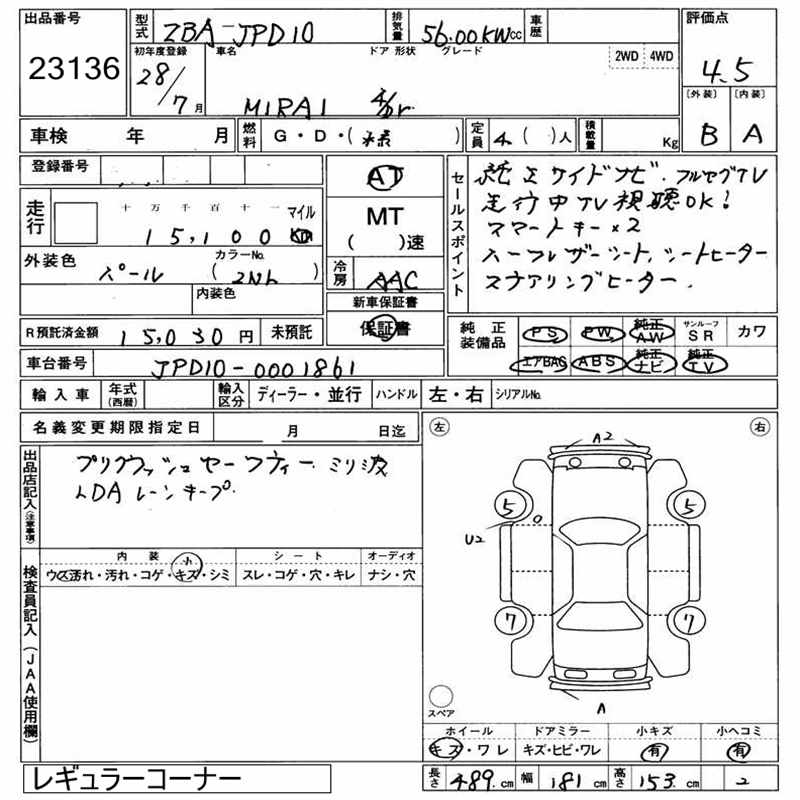 出品番号 型式 ZBA-JPD10 排気量 56.00KWcc 車歴 評価点
23136 初年度登録 車名 ドア 形状 グレード 2WD 4WD 4.5
28/7月 MIRAI 4Dr 〔外装〕 〔内装〕
車検 年 月 燃料 G・D・( ) 定員 4 ( )人 積載量 Kg B A
登録番号 AT セールスポイント 純正ワイドナビ・フルセグTV
走行 十 万 千 百 十 一 マイル MT 走行中TV視聴OK!
15,100 Km ( )速 スマートキー×2
外装色 カラーNo. 冷房 AAC ハーフレザーシート、シートヒーター
パール (2NL) ステアリングヒーター.
内装色 新車保証書
R預託済金額 15,030 円 未預託 保証書 純正装備品 PS PW 純正AW サンルーフSR カワ
車台番号 JPD10-0001861 エアBAG ABS 純正ナビ 純正TV
輸入車 年式(西暦) 輸入区分 ディーラー・並行 ハンドル 左・右 シリアルNo.
名義変更期限指定日 月 日迄 左 右
出品店記入(注意事項) プリクラッシュセーフティー ミリ波
LDA レーンキープ
A2
5 5
U2
7 7
検査員記入(JAA使用欄) 内装 小 シート オーディオ
ウス汚れ・汚れ・コゲ・キズ・シミ スレ・コゲ・穴・キレ ナシ・穴
スペア A
ホイール ドアミラー 小キズ 小ヘコミ
キズ・ワレ キズ・ヒビ・ワレ 有 有
レギュラーコーナー 長さ 489.cm 幅 181 cm 高さ 153.cm 2